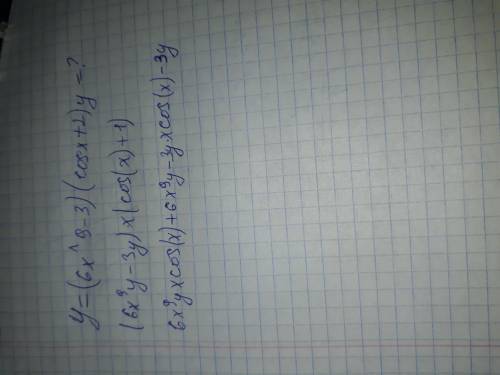 y=(6x^9-3)(cosx+2)y=?
(6x⁹y-3y)x(cos(x)+1)
6x⁹yxcos(x)+6x⁹y-3yxcos(x)-3y